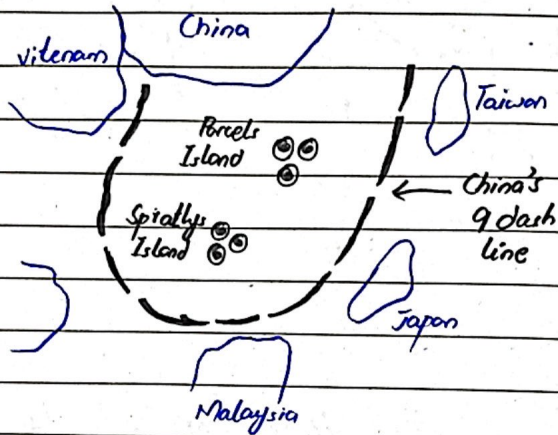 China
vitenam
Taiwan
Parcels
Island
China's
9 dash
line
Spratlys
Island
Japan
Malaysia